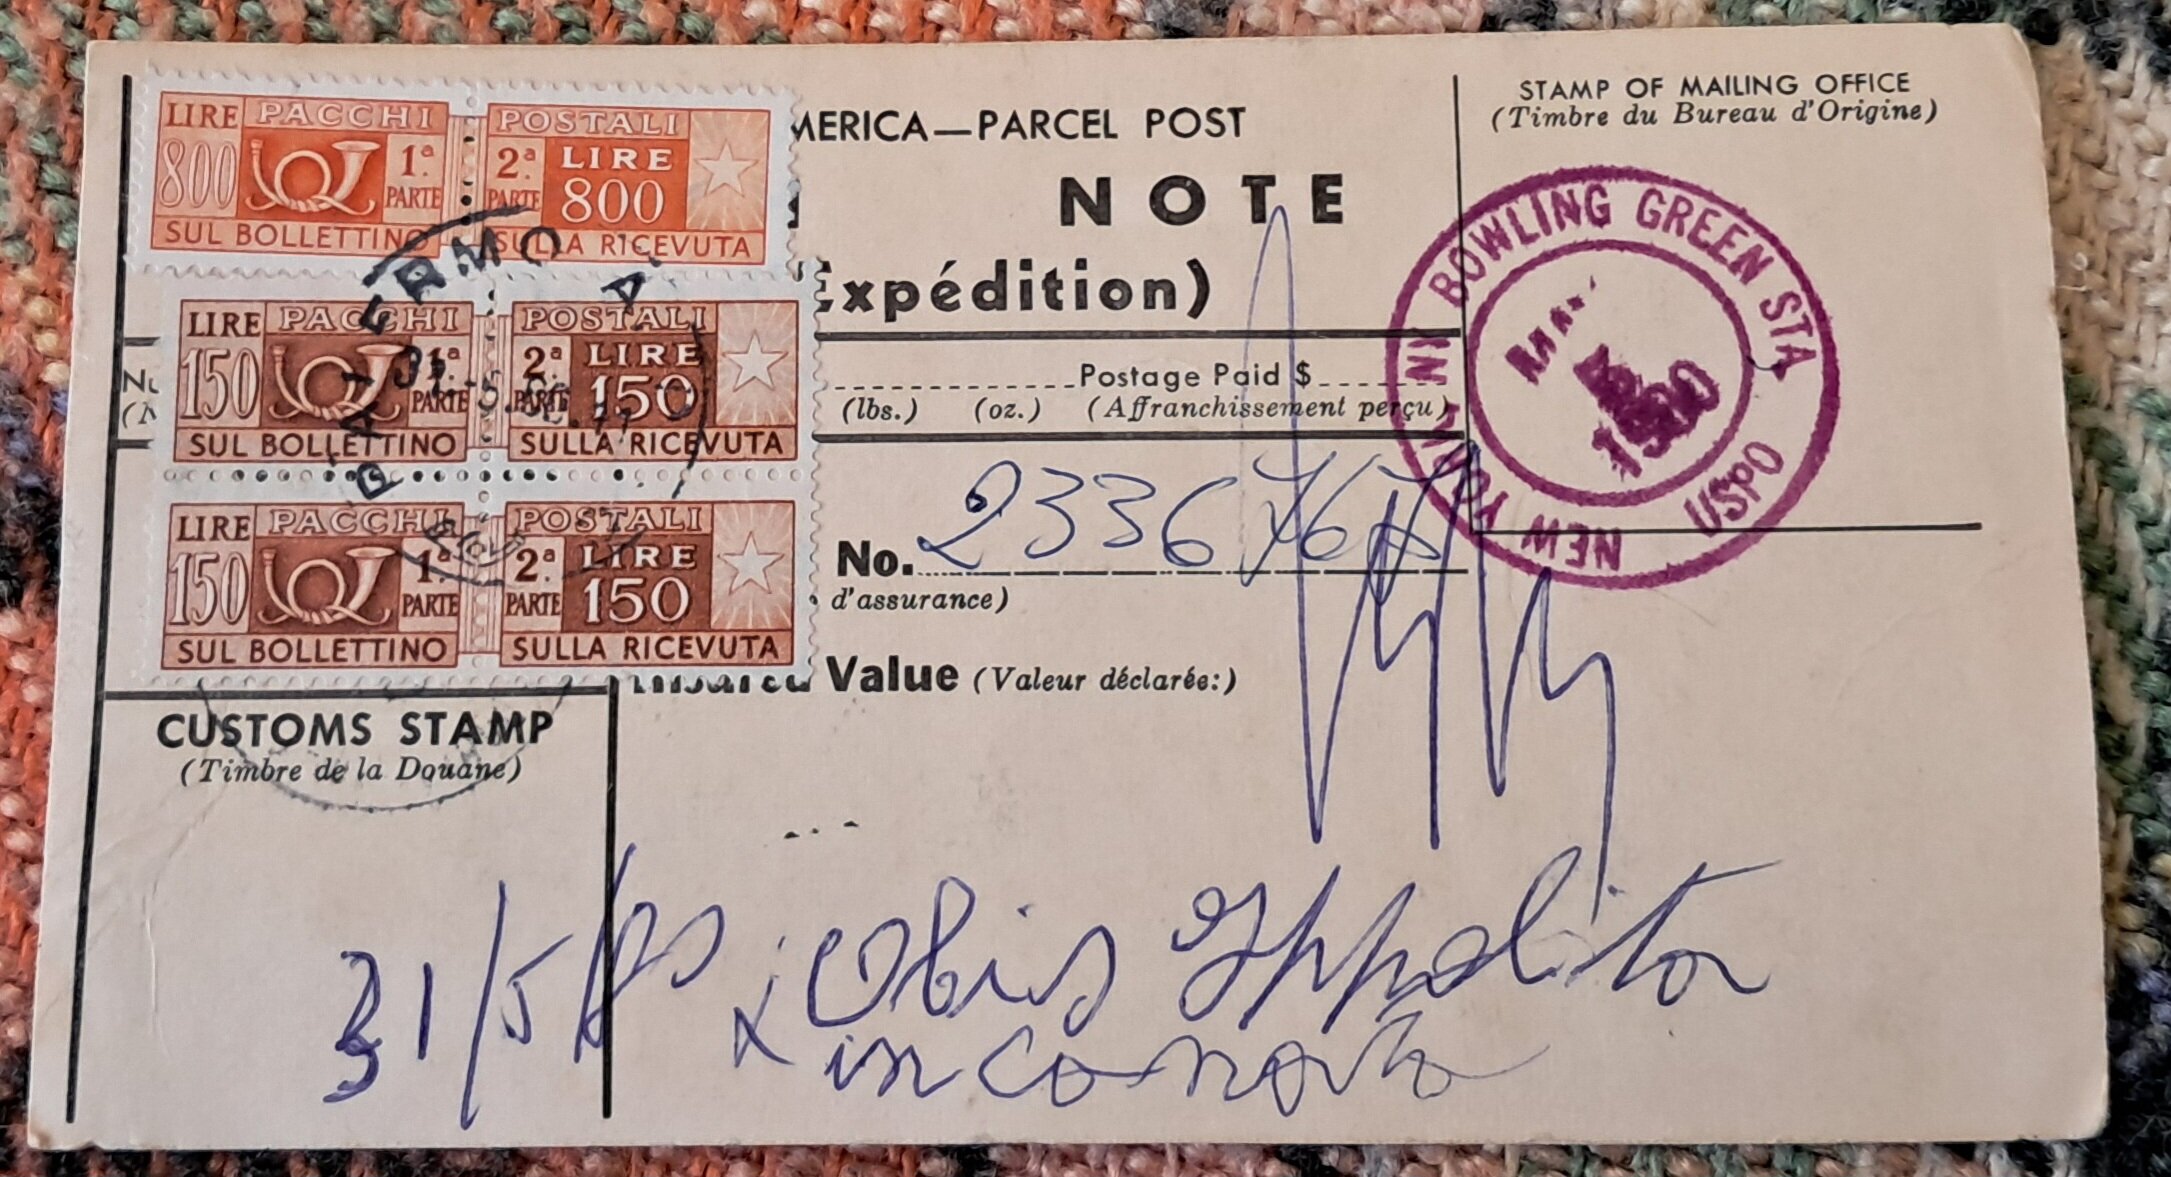 LIRE PACCHI POSTALI
800 1ª. PARTE 2ª. PARTE LIRE 800
SUL BOLLETTINO SULLA RICEVUTA
LIRE PACCHI POSTALI
150 1ª. PARTE 2ª. PARTE LIRE 150
SUL BOLLETTINO SULLA RICEVUTA
LIRE PACCHI POSTALI
150 1ª. PARTE 2ª. PARTE LIRE 150
SUL BOLLETTINO SULLA RICEVUTA
PALERMO
MERICA—PARCEL POST
NOTE
Expédition)
Postage Paid $
(lbs.) (oz.) (Affranchissement perçu)
No. 2336767
d'assurance)
Insured Value (Valeur déclarée:)
STAMP OF MAILING OFFICE
(Timbre du Bureau d'Origine)
BOWLING GREEN STA
USPO
NEW YORK NY
1980
CUSTOMS STAMP
(Timbre de la Douane)
31/5/80
Ippolito